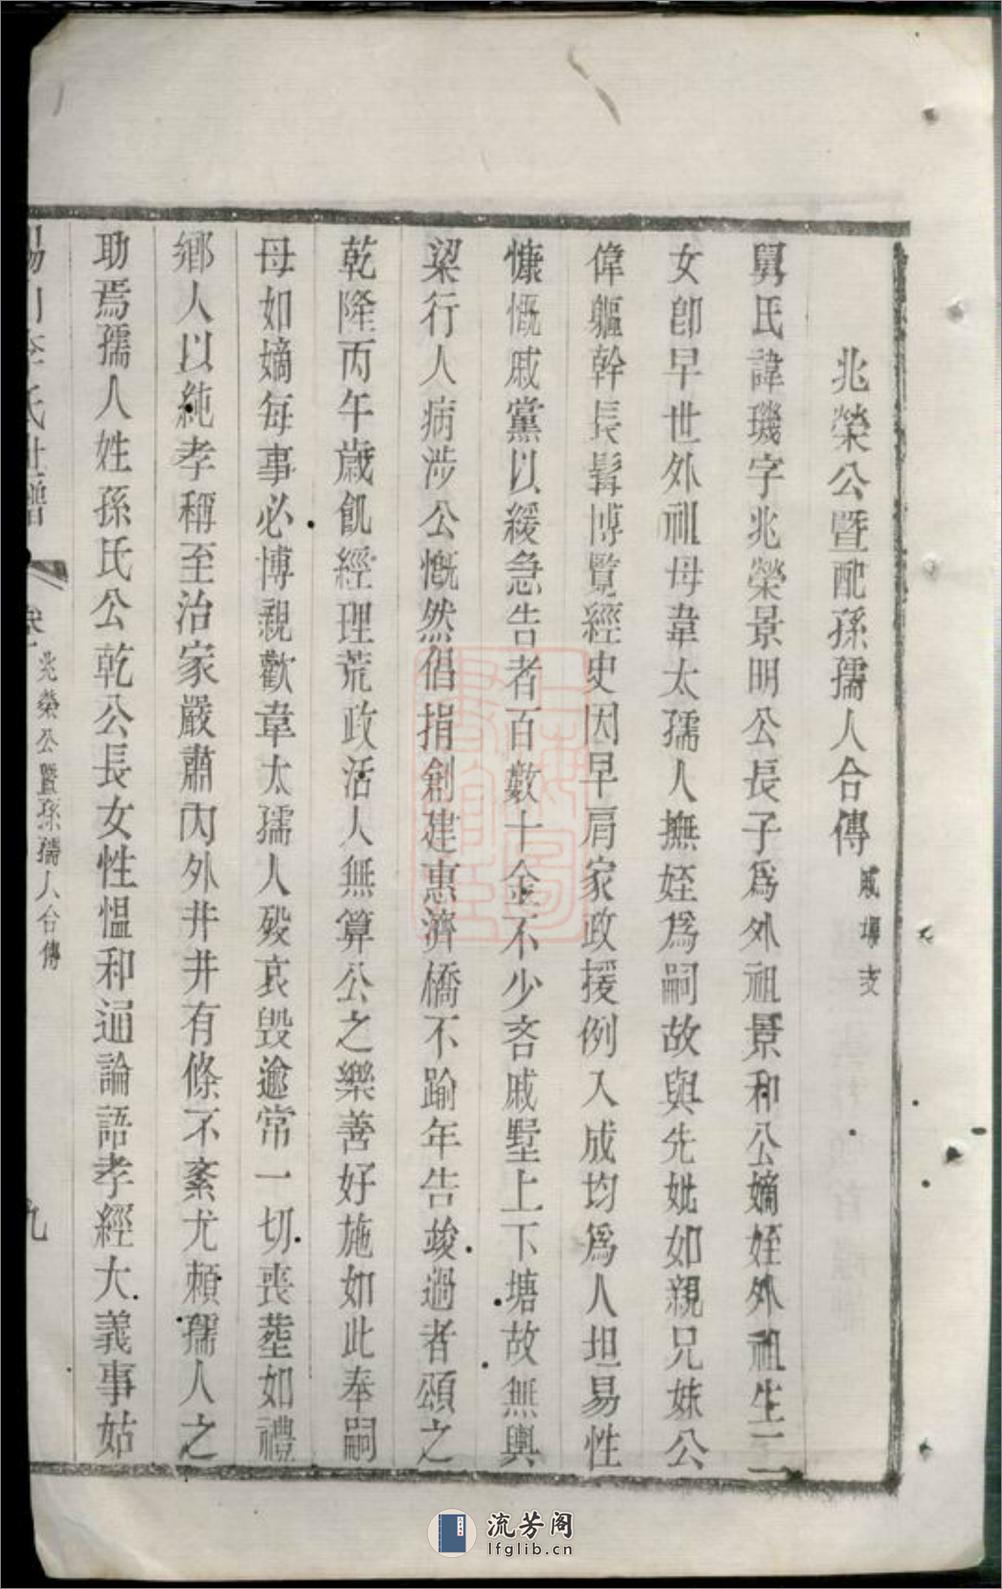 兆榮公暨配孫孺人合傳 戚墅支
舅氏諱璣字兆榮景明公長子爲外祖景和公嫡姪外祖生二
女卽早世外祖母韋太孺人撫姪爲嗣故與先妣如親兄妹公
偉軀幹長髯博覽經史因早肩家政援例入成均爲人坦易性
慷慨戚黨以緩急告者百數十金不少吝戚墅上下塘故無輿
梁行人病涉公慨然倡捐創建惠濟橋不踰年告竣過者頌之
乾隆丙午歲飢經理荒政活人無算公之樂善好施如此奉嗣
母如嫡每事必博親歡韋太孺人歿哀毀逾常一切喪塟如禮
鄉人以純孝稱至治家嚴肅內外井井有條不紊尤賴孺人之
助焉孺人姓孫氏公乾公長女性愠和通論語孝經大義事姑
李氏世譜 兆榮公暨孫孺人合傳 九
流芳阁
lfglib.cn